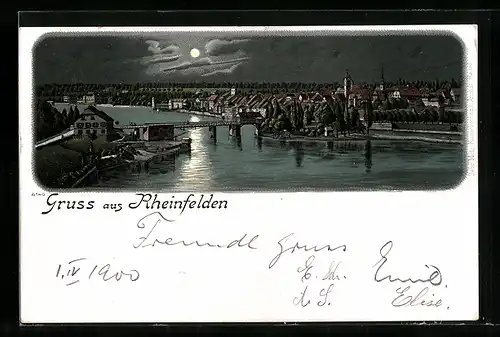 Gruss aus Rheinfelden
Freundl Gruss
1. IV 1900
Emil
Elise.